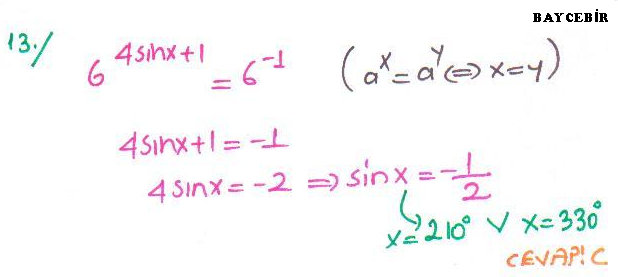 BAYCEBİR
13./ 6^(4sinx+1) = 6^(-1) (a^x = a^y ⇔ x = y)
4sinx+1 = -1
4sinx = -2 ⇒ sinx = -1/2
x = 210° ∨ x = 330°
CEVAP: C